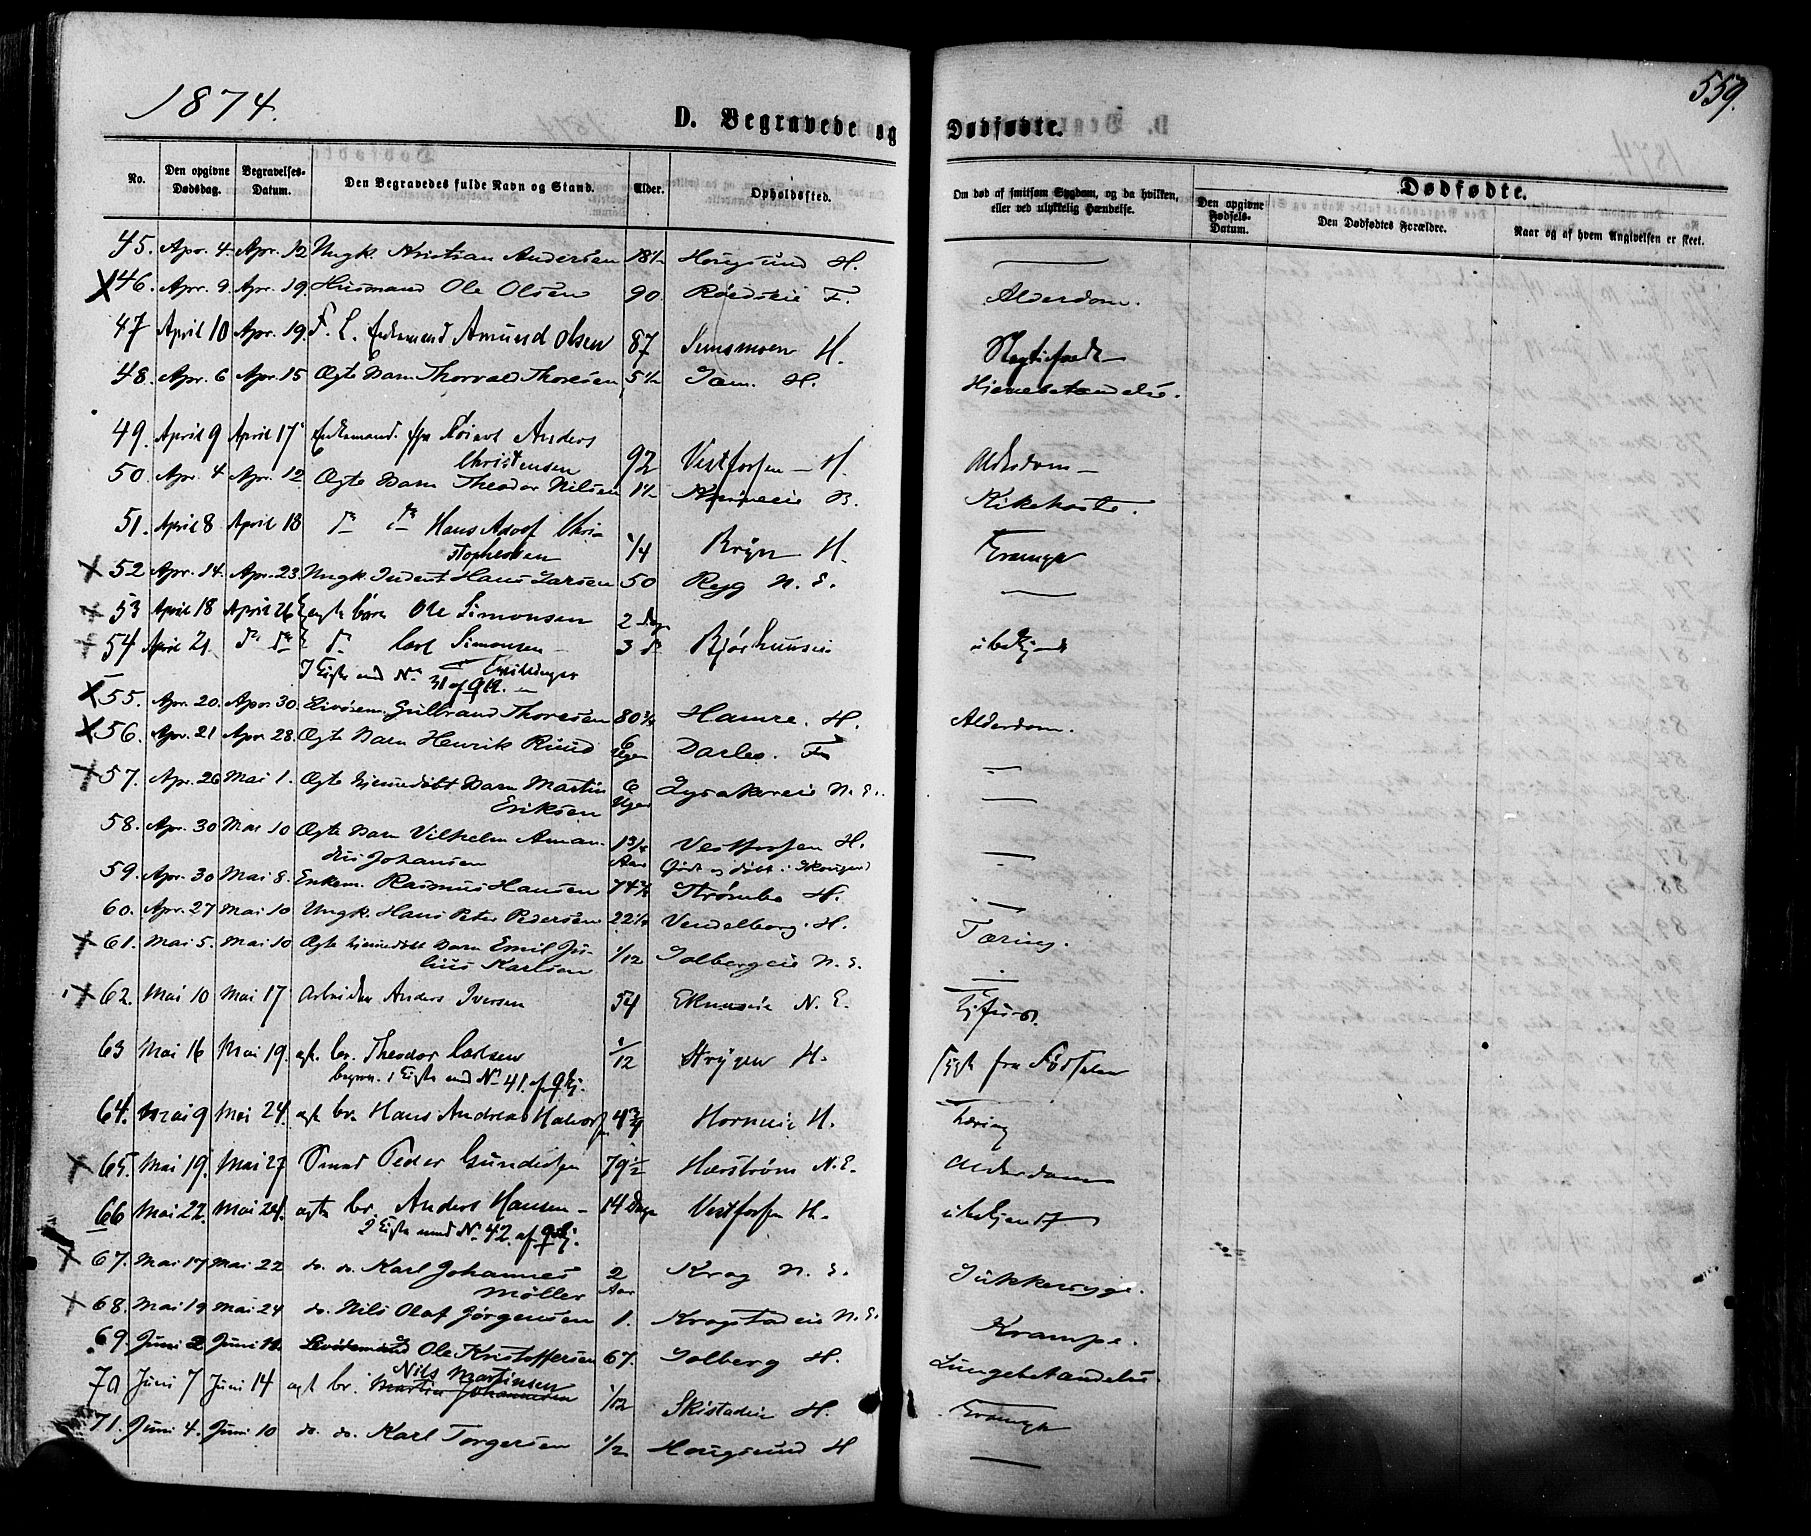 1874.
559.
D. Begravede og Dødfødte.
No. Den opgivne Dødsdag. Begravelses-Datum. Den Begravedes fulde Navn og Stand. Alder. Opholdssted. Om død af smitsom Sygdom, og da hvilken, eller ved ulykkelig Hændelse. Dødfødte.
Den opgivne Fødsels-Datum. Den Dødfødtes Forældre. Naar og af hvem Angivelsen er skeet.
45. Apr. 4. Apr. 12 Ungk. Kristian Andersen 18½ Hougsund H. —
46. Apr. 9. Apr. 19. Husmand Ole Olsen 90. Røedseie F. Alderdom.
47 April 10 Apr. 19. F. L. Enkemand Amund Olsen 87 Semsmoen H.
48. Apr. 6 Apr. 15 Ægte Barn Thorvald Thoresen 5½ Sem. H. Hjernebetændelse.
49. April 9 April 17 Enkemand Anders
Christensen 92 Vestfossen — H. Alderdom —
50. Apr. 4 Apr. 12 Ægte Barn Theodor Nilsen 1½ B. Kikehoste.
51. April 8 April 18 do do Hans Adolf Chri
stophersen ¼ Bryn H. Krampe
52 Apr. 14. Apr. 23. Ungk. Indent Hans Larsen 50 Regg N. E. —
53 April 18 April 26 ægte børn Ole Simonsen 2 Dage
54 April 21. do do do Carl Simonsen — 3 do Bjørhuuseie ubekjendt
I Kiste med No 31 af Qk. Tvillinger
55. Apr. 20. Apr. 30. Livøsem. Gulbrand Thoresen 80¾ Hamre. H. Alderdom.
56. Apr. 21 Apr. 28. Ægte Barn Henrik Ruud 6 Uger Darbo. F. —
57. Apr. 26 Mai 1. Ægte hjemmedøbt Barn Martin
Eriksen 6 Uger N. E. —
58. Apr. 30 Mai 10 Ægte Barn Vilhelm Aman-
dus Johansen 1¾ Aar Vestfossen H. —
(født og døbt i Skouger)
59. Apr. 30 Mai 8. Enkem. Rasmus Hansen 74 Strømbo H. —
60. Apr. 27 Mai 10 Ungk. Hans Peter Pedersen 22¼ Vendelborg. H. Tæring.
61. Mai 5. Mai 10 Ægte hjemmedøbt Barn Emil Ju-
lius Karlsen 1/12 Solbergeie N. E. —
62. Mai 10 Mai 17 Arbeider Anders Iversen 54 Ekneseie N. E.
63 Mai 16 Mai 19. ægt. br. Theodor Carlsen 1/12 Strygen H. svag fra Fødselen
begra. i Kiste med No 41. af Qkj.
64. Mai 9 Mai 24. ægt br. Hans Andreas Halvors 4¾ Horneie H. Tæring
65. Mai 19. Mai 27 Peder Gundersen 79½ Hærstrøm N. E. Alderdom
66 Mai 22. Mai 24. ægte br. Anders Hansen — 14 Dage Vestfossen H. ubekjendt
I Kiste med No 42. af Qkj.
67. Mai 17 Mai 22 do. do. Karl Johannes
Møller 2 Aar Krog N. E. Sukkersyge.
68. Mai 19 Mai 24 do. Nils Olaf Jørgensen 1. Krogstadeie N. E. Krampe.
69. Juni 2 Juni 11. Ole Kristoffersen 67. Solberg H. Lungebetændelse
70 Juni 7 Juni 14 ægt br. Nils Martinsen 1/12 Skistadeie H. Krampe
71. Juni 4. Juni 10 do. do. Karl Torgersen ½ Hougsund H —